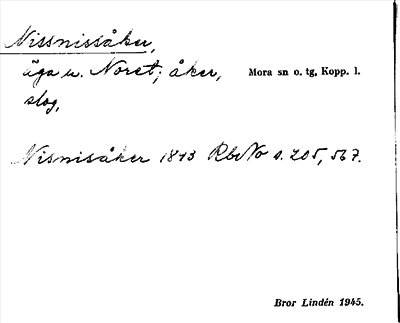 Nissnissåker,
äga u. Noret; åker, Mora sn o. tg, Kopp. l.
slog,
Nisnisåker 1843 RbNo s. 205, 567.
Bror Lindén 1945.